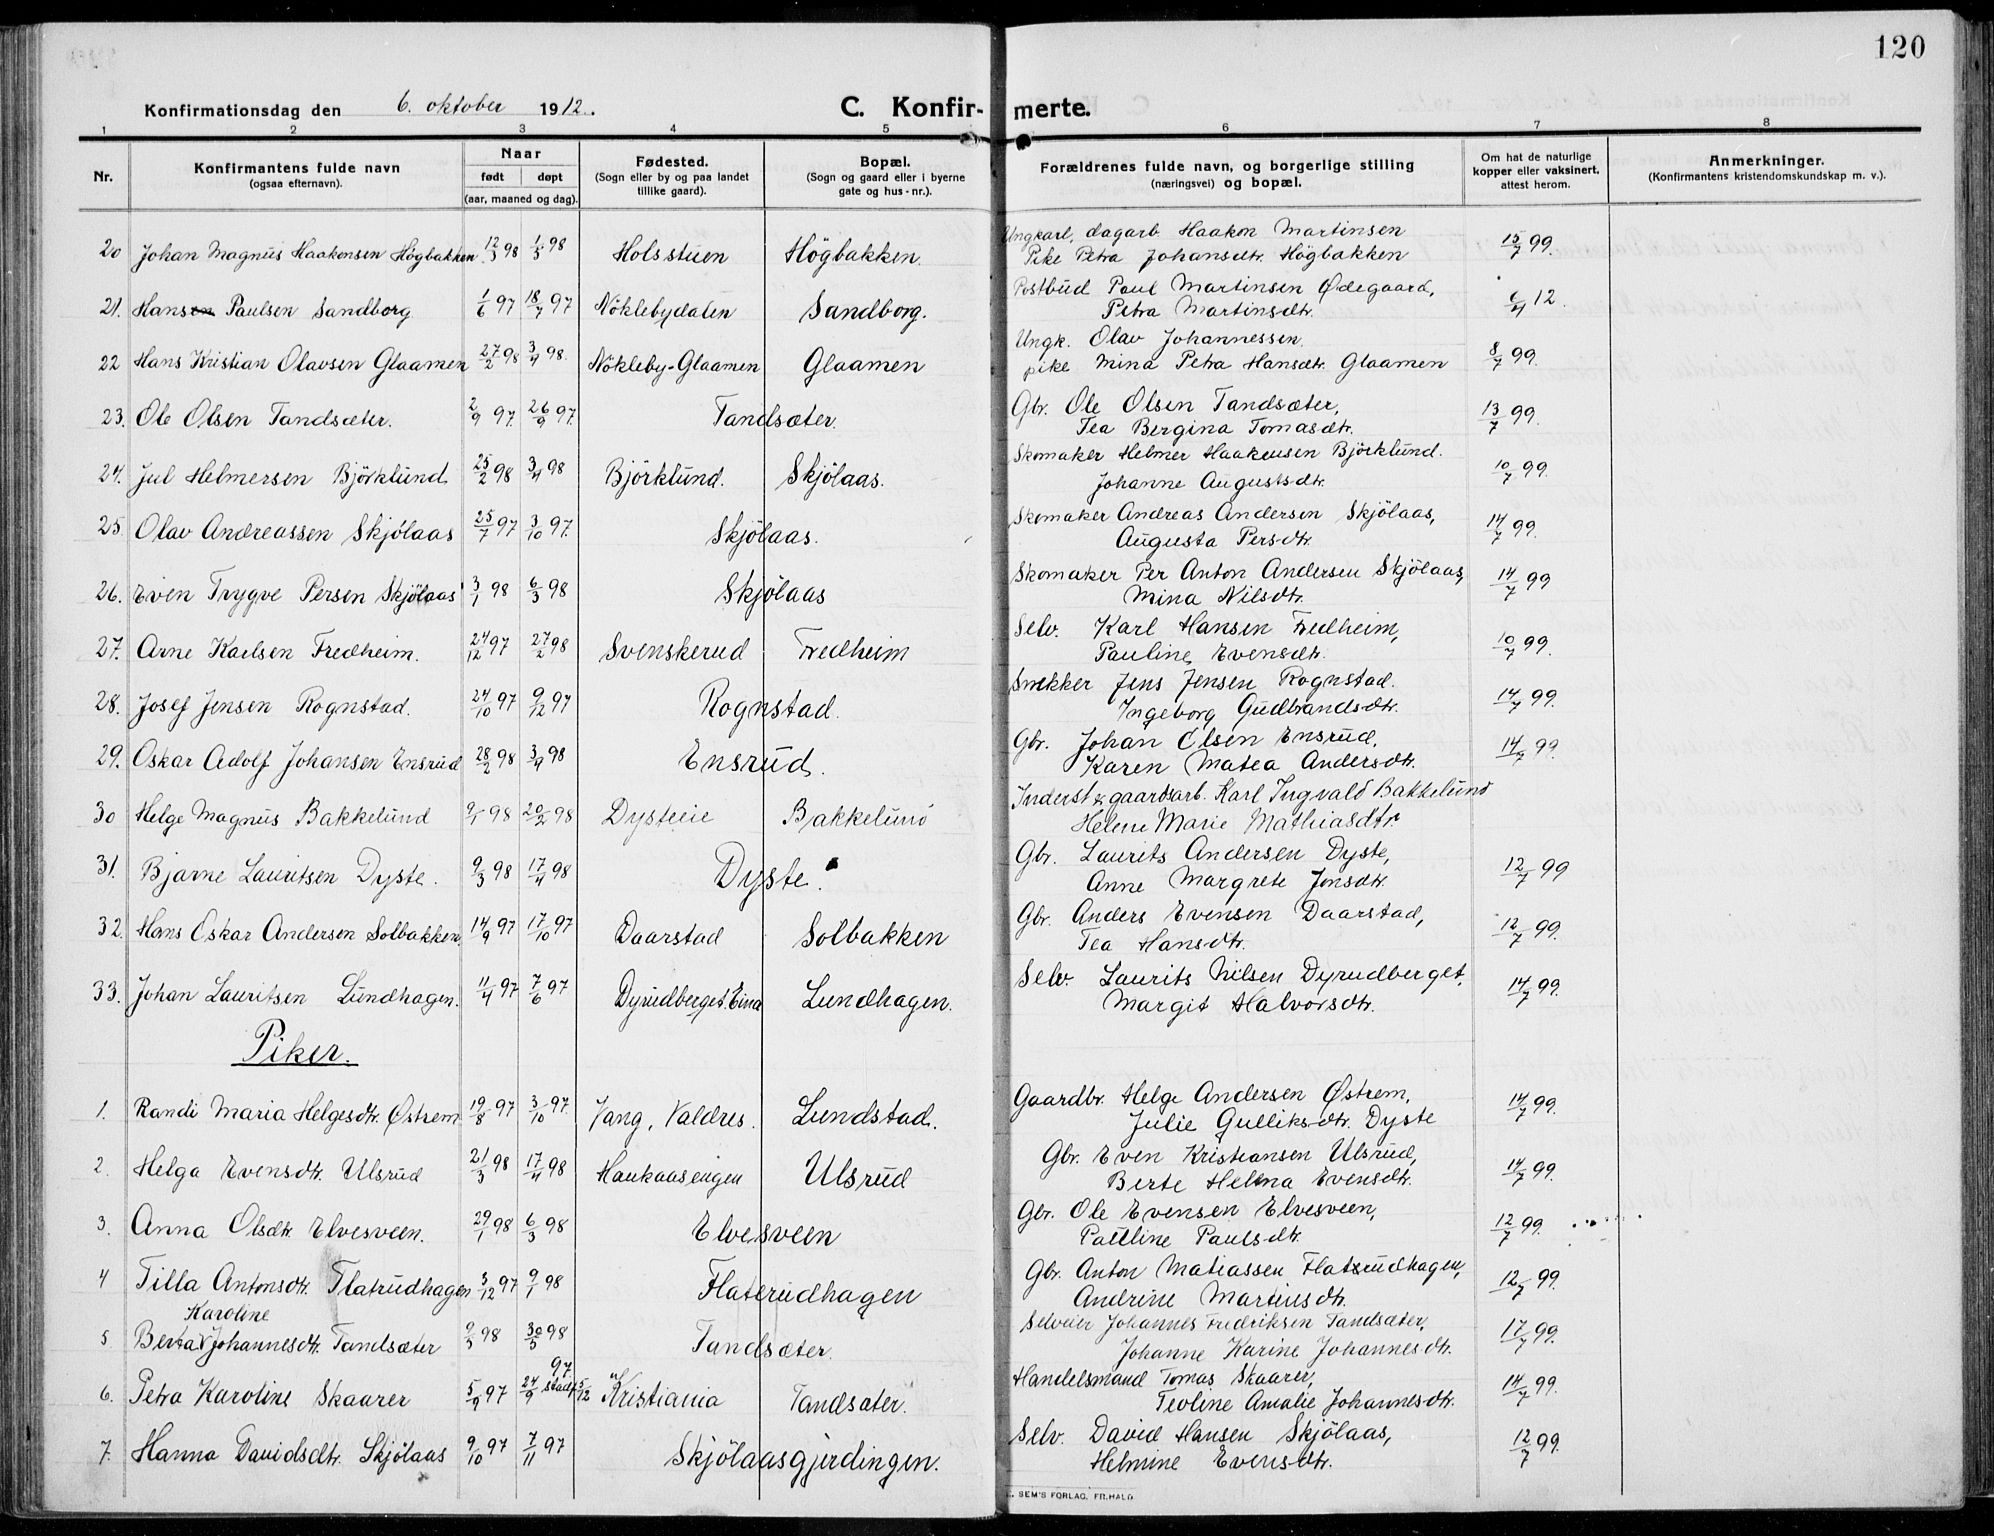 120
Konfirmationsdag den 6. oktober 1912. C. Konfir- merte.
1 2 3 4 5 6 7 8
Nr. Konfirmantens fulde navn (ogsaa efternavn). Naar født døpt (aar, maaned og dag). Fødested. (Sogn eller by og paa landet tillike gaard). Bopæl. (Sogn og gaard eller i byerne gate og hus-nr.). Forældrenes fulde navn, og borgerlige stilling (næringsvei) og bopæl. Om hat de naturlige kopper eller vaksinert, attest herom. Anmerkninger. (Konfirmantens kristendomskundskap m. v.).
20 Johan Magnus Haakensen Högbakken 12/3 98 1/5 98 Holsstuen Högbakken. Ungkarl, dagarb. Haakon Martinsen 15/7 99.
Pike Petra Johansdtr. Högbakken
21. Hans Paulsen Sandborg 1/6 97 18/7 97 Nöklebydalen Sandborg. Postbud Paul Martinsen Ødegaard, 6/4 12.
Petra Martinsdtr.
22 Hans Kristian Olavsen Glaamen 27/2 98 3/4 98. Nökleby-Glaamen Glaamen Ungk. Olav Johannessen. 8/7 99.
pike Mina Petra Hansdtr. Glaamen
23. Ole Olsen Tandsæter. 2/9 97. 26/9 97. Tandsæter. Gbr. Ole Olsen Tandsæter, 13/7 99.
Tea Bergina Tomasdtr.
24. Jul Helmersen Björklund 25/2 98 3/4 98 Björklund. Skjölaas. Skomaker Helmer Haakensen Björklund. 10/7 99.
Johanne Augustsdtr.
25 Olav Andreassen Skjölaas 25/7 97 3/10 97. Skjölaas. Skomaker Andreas Andersen Skjölaas, 14/7 99.
Augusta Persdtr.
26. Even Trygve Persen Skjölaas 3/1 98 6/3 98 Skjölaas Skomaker Per Anton Andersen Skjölaas, 14/7 99
Mina Nilsdtr.
27. Arne Karlsen Fredheim. 24/12 97 27/2 98 Svenskerud Fredheim Selv. Karl Hansen Fredheim, 10/7 99.
Pauline Evensdtr.
28. Josef Jensen Rognstad. 24/10 97 9/12 97 Rognstad. Snekker Jens Jensen Rognstad. 14/7 99.
Ingeborg Gudbrandsdtr.
29. Oskar Adolf Johansen Ensrud 28/2 98 3/4 98 Ensrud. Gbr. Johan Olsen Ensrud, 14/7 99.
Karen Matea Andersdtr.
30 Helge Magnus Bakkelund 9/1 98 20/2 98 Dysteeie Bakkelund Inderst & gaardsarb. Karl Ingvald Bakkelund
Helene Marie Mathiasdtr.
31. Bjarne Lauritsen Dyste. 9/3 98 17/4 98 Dyste. Gbr. Laurits Andersen Dyste, 12/7 99
Anne Margrete Jonsdtr.
32. Hans Oskar Andersen Solbakken 14/9 97 17/10 97 Daarstad Solbakken Gbr. Anders Evensen Daarstad, 12/7 99.
Tea Hansdtr.
33. Johan Lauritsen Lundhagen. 11/4 97 7/6 97 Dyrudberget. Eina Lundhagen. Selv. Laurits Nilsen Dyrudberget, 14/7 99.
Margit Halvorsdtr.
Piker.
1. Randi Maria Helgesdtr. Østrem 19/8 97 3/10 97. Vang, Valdres. Lundstad. Gaardbr. Helge Andersen Østrem, 14/7 99.
Julie Gulliksdtr. Dyste
2. Helga Evensdtr. Ulsrud 21/3 98 17/4 98 Haukaasengen Ulsrud Gbr. Even Kristiansen Ulsrud, 14/7 99.
Berte Helena Evensdtr.
3. Anna Olsdtr. Elvesveen. 29/1 98 6/3 98 Elvesveen Gbr. Ole Evensen Elvesveen, 12/7 99.
Pauline Paulsdtr.
4 Tilla Antonsdtr. Flatrudhagen 3/12 97 9/1 98 Flaterudhagen Gbr. Anton Matiassen Flaterudhagen, 12/7 99.
Andrine Martinsdtr.
Karoline
5 Berta Johannesdtr. Tandsæter 9/3 98 30/5 98 Tandsæter. Selveier Johannes Fredriksen Tandsæter, 17/7 99.
Johanne Karine Johannesdtr.
6. Petra Karoline Skaarer 5/9 97 24/9 97 stadf. 5/12 Kristiania Tandsæter. Handelsmand Tomas Skaarer, 14/7 99.
Teoline Amalie Johannesdtr.
7. Hanna Davidsdtr. Skjölaas 9/10 97 7/11 97 Skjölaasgjerdingen. Selv. David Hansen Skjölaas, 12/7 99.
Helmine Evensdtr.
SEM'S FORLAG, FR.HALD